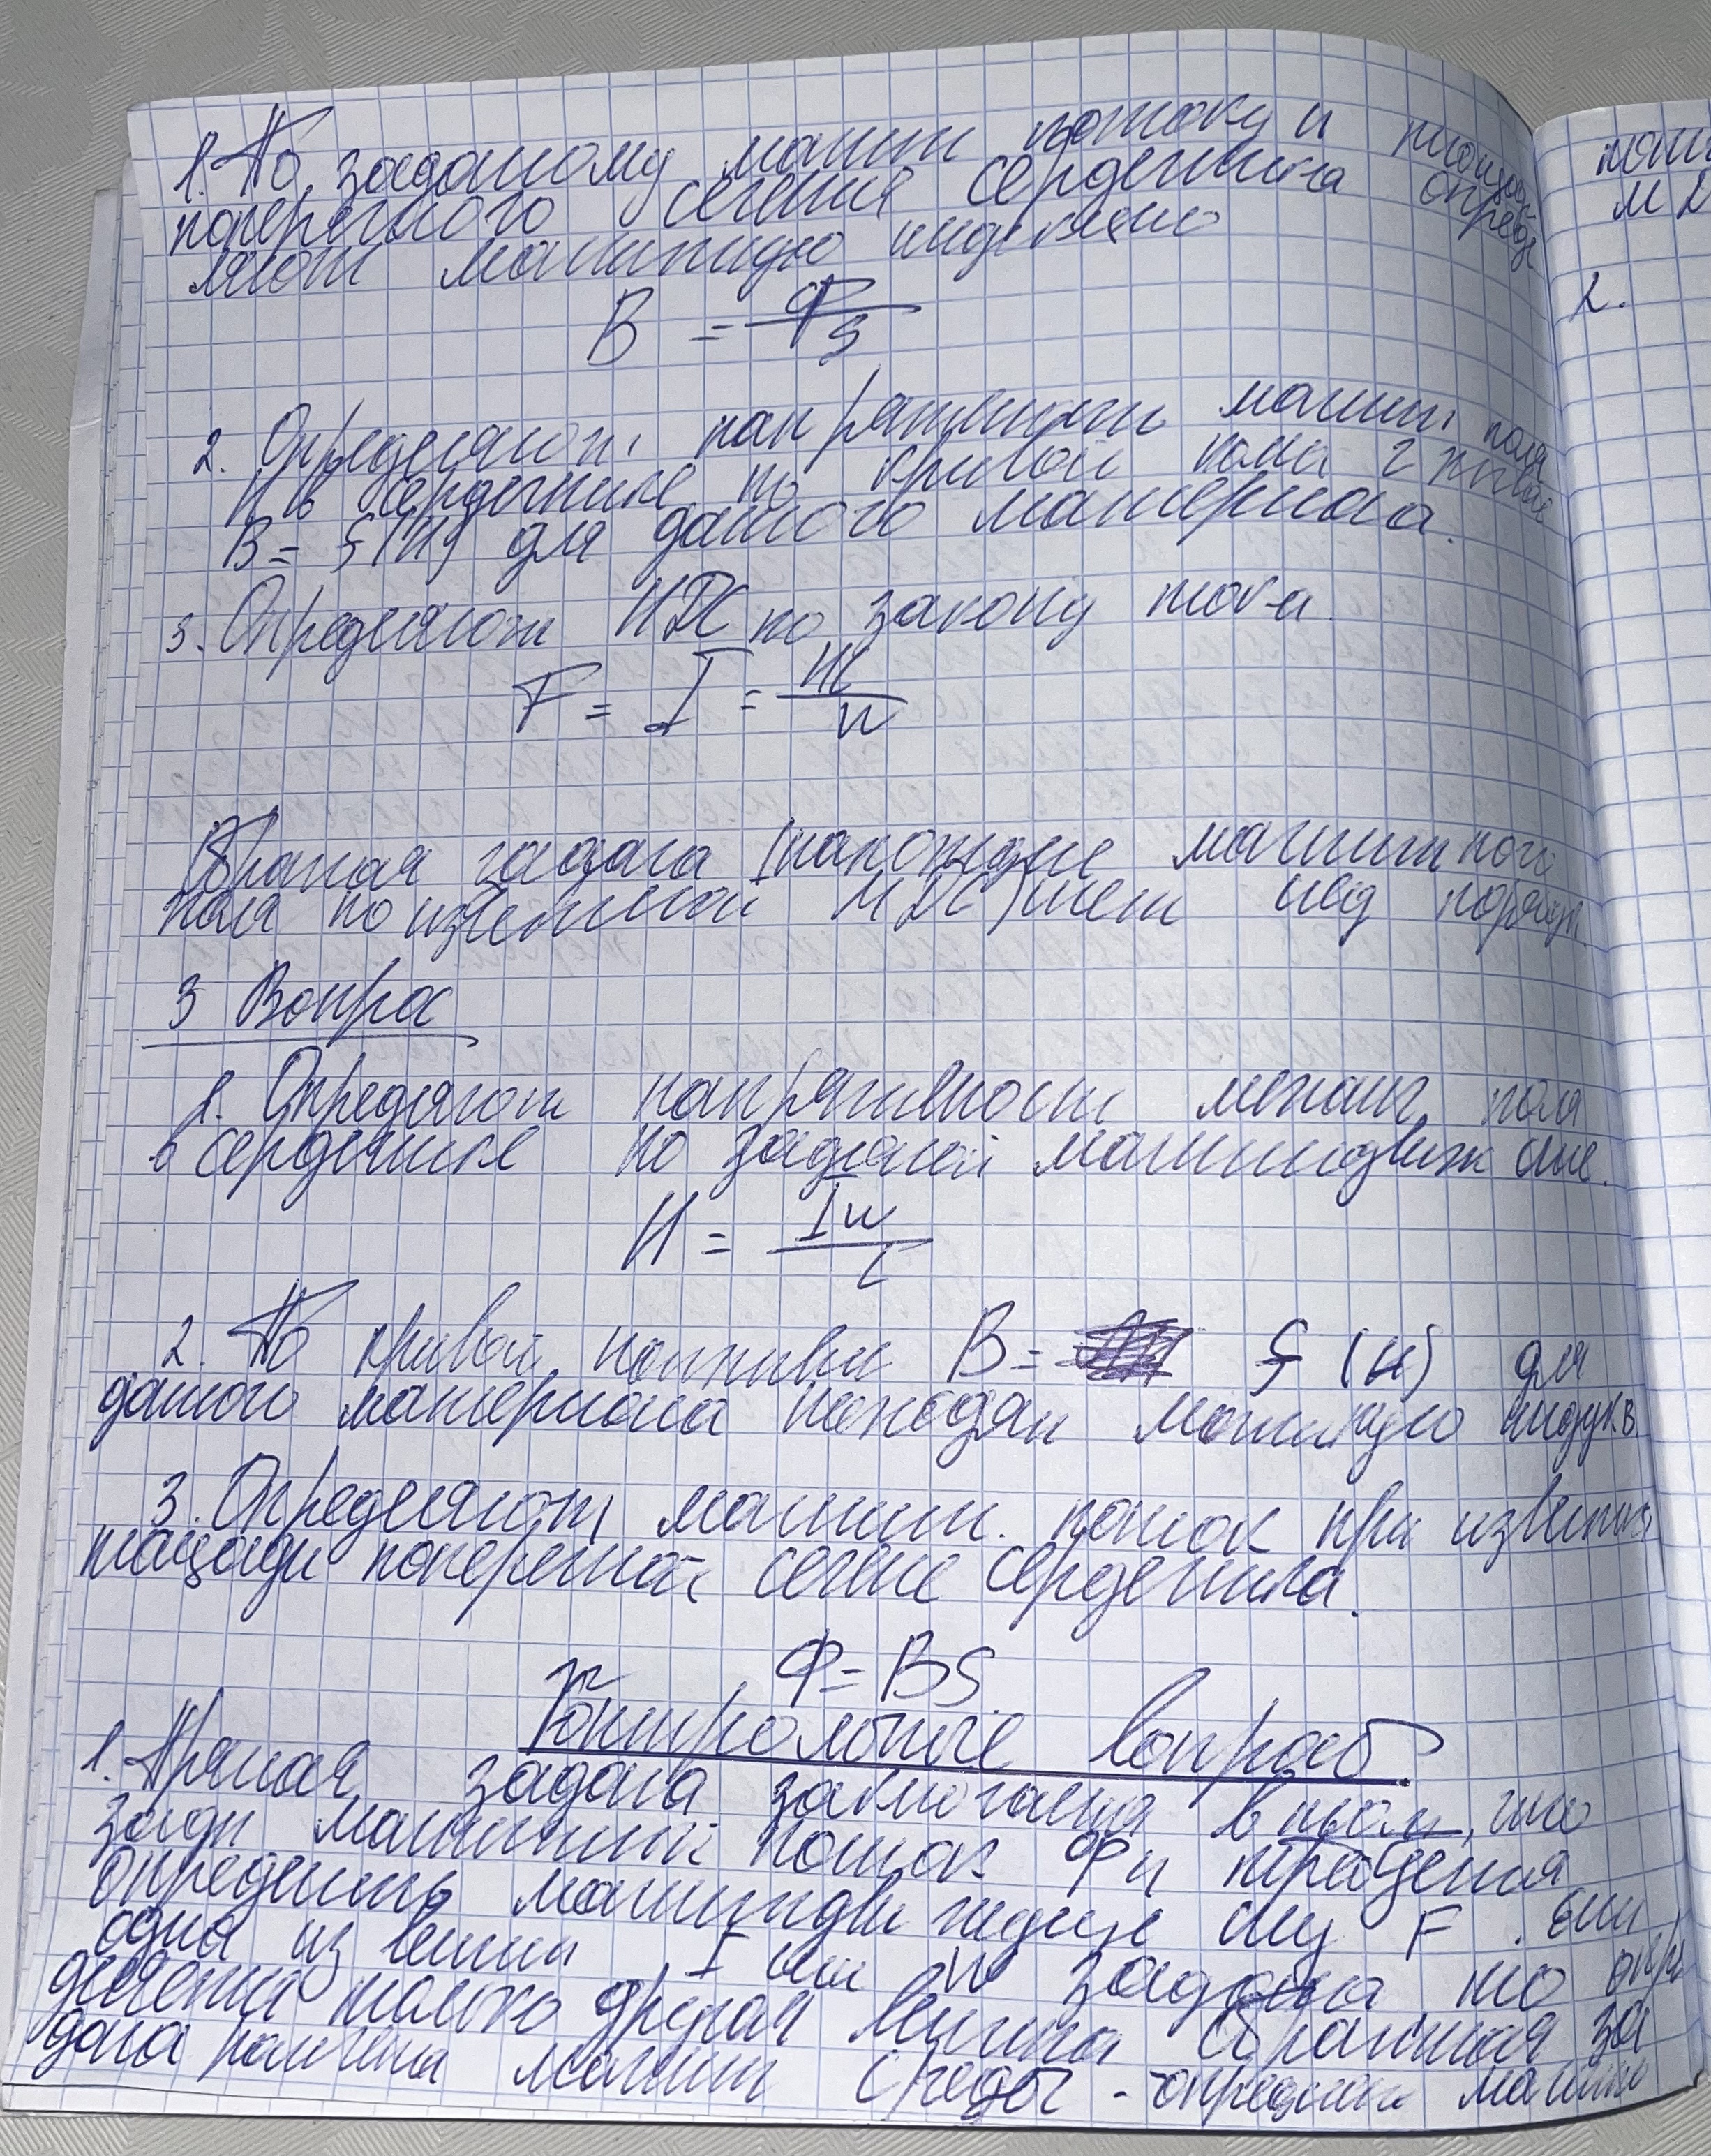 1. По заданому магнит потоку и площад
поперечного сечения сердечника опреде
ляют магнитную индукцию
B = Ф/S
2. Определяют напряженност магнит. поля
H в сердечнике по кривой нама
B = f(H) для данного материала.
3. Определяют МДС по закону тока.
F = I = Hl/w
Обратная задача (нахождение магнитного
поля по известной МДС) имеет след порядк.
3 Вопрос
1. Определяют напряжен­ност магнит. поля
в сердечнике по заданой магнитодвиж силе.
H = Iw/l
2. По кривой намагнив B = f (H) для
данного материала находят магнитную индук. B
3. Определяют магнит. поток при известной
площади поперечной сечене сердечника.
Ф = BS
Контрольные вопросы
1. Прямая задача заключается в том, что
задан магнитный поток Ф и требуется
определить магнитодвижущую силу F. Если
одна из величин I или w задана то опре
деляется только другая величина Обратная за
дача расчета магнит - определить магнит
пот
2.